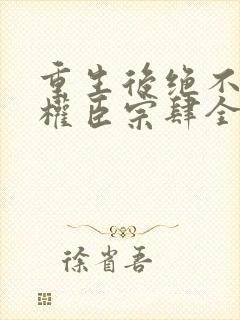 重生後绝不
權臣宗肆全
徐省吾